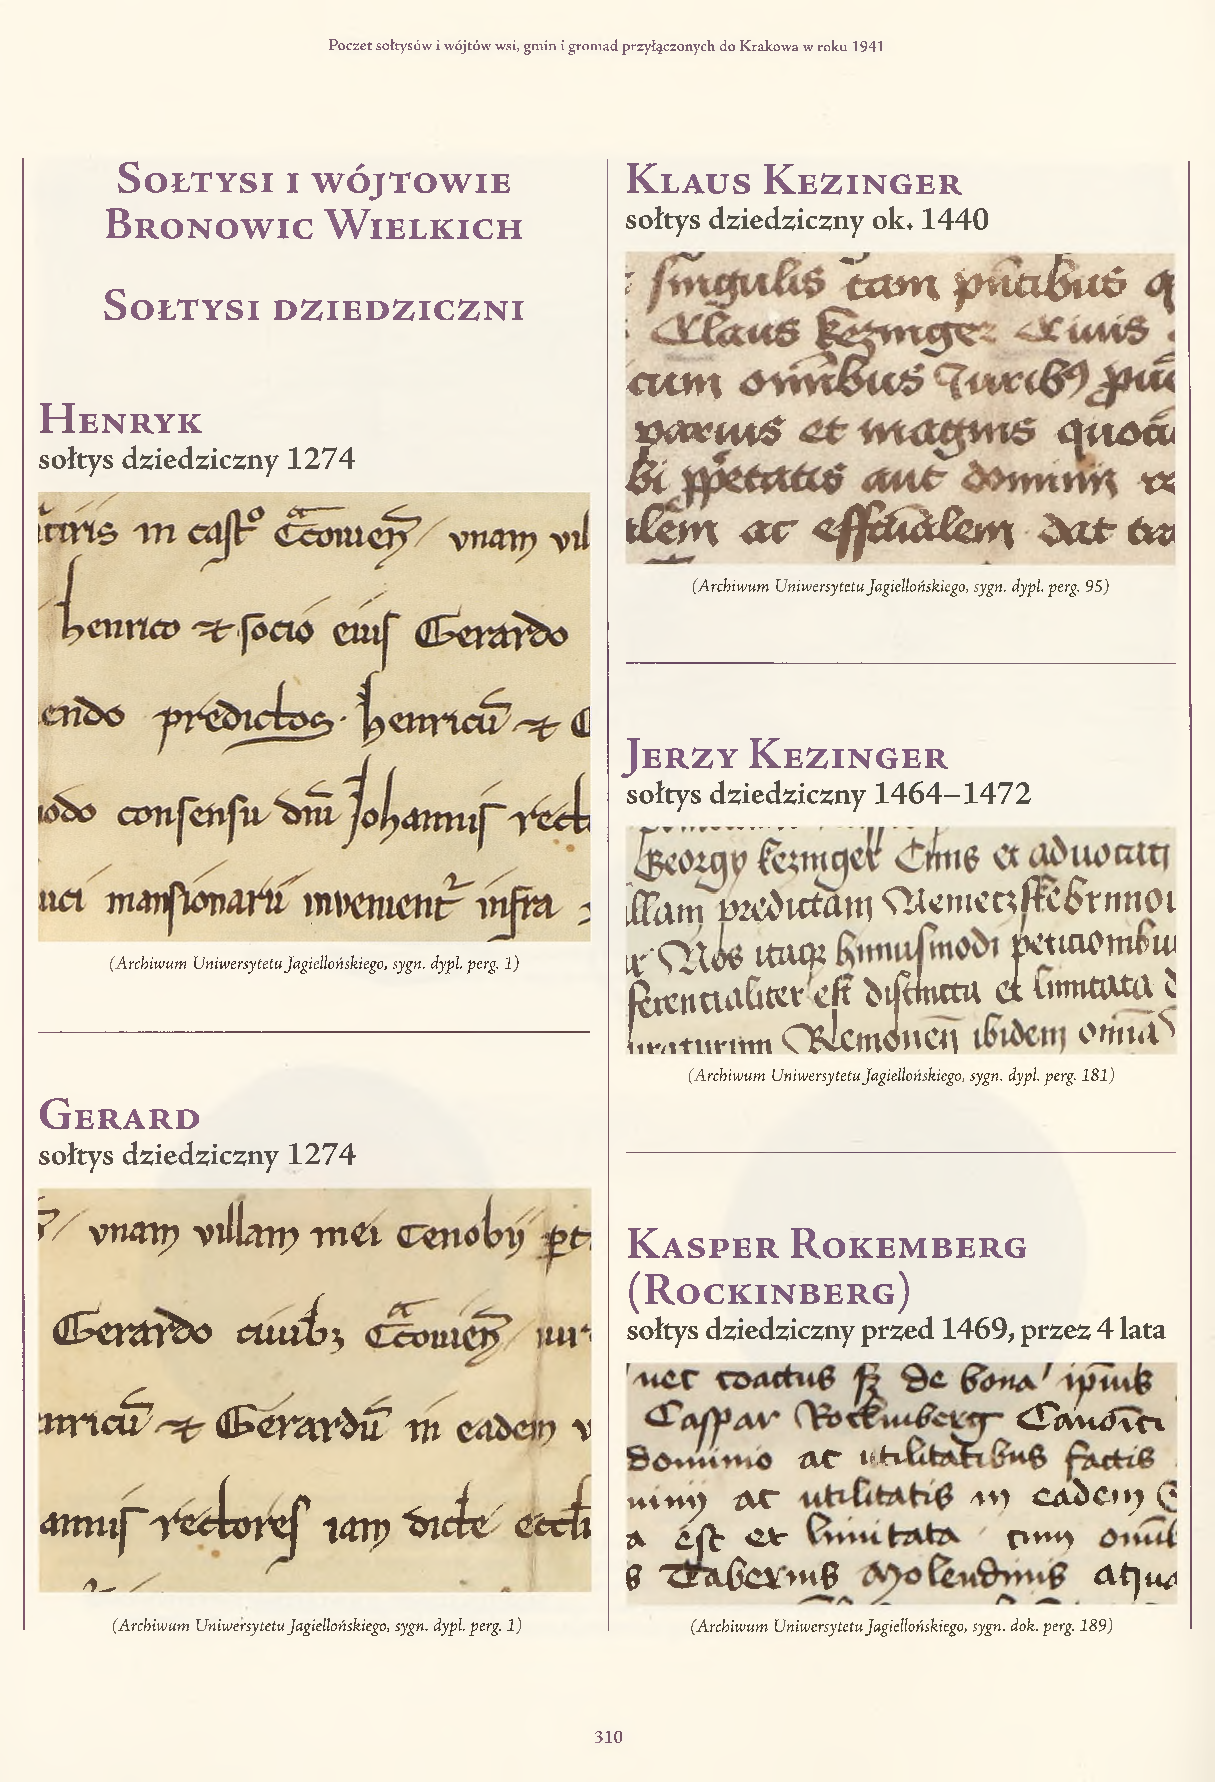 Poczet sołtysów i wójtów wsi, gmin i gromad przyłączonych do Krakowa w roku 1941
Sołtysi i wójtowie
Bronowic Wielkich
Sołtysi dziedziczni
Henryk
sołtys dziedziczny 1274
in castº Cͣcouien̄ / vnam vil
henrico ⁊ socio eiuſ Gerardo
endo predictos · henricū ⁊ G
odo conſenſu dn̄i Johanniſ rect
uci manſionarii invenient infra
(Archiwum Uniwersytetu Jagiellońskiego, sygn. dypl. perg. 1)
Gerard
sołtys dziedziczny 1274
/ vnam villam mei Cenobij
Gerardo ciuibꝫ Cͣcouien̄ /
nricū ⁊ Gerardū in eadem v
anniſ rectoreſ iam dicte eccli
(Archiwum Uniwersytetu Jagiellońskiego, sygn. dypl. perg. 1)
Klaus Kezinger
sołtys dziedziczny ok. 1440
singulis tam pn̄tibus q
Claus kezinger Ciuis
cum om̄ibus Juribꝯ
paruis et magnis quocū
aut dominii
ac dat
(Archiwum Uniwersytetu Jagiellońskiego, sygn. dypl. perg. 95)
Jerzy Kezinger
sołtys dziedziczny 1464–1472
Georgy kezinger Ciuis et aduocati
illam predictam
Nos itaqꝫ huiusmodi peticionibu
ferentialiter est distincta et limitata d
ibidem om̄ia
(Archiwum Uniwersytetu Jagiellońskiego, sygn. dypl. perg. 181)
Kasper Rokemberg
(Rockinberg)
sołtys dziedziczny przed 1469, przez 4 lata
nec coactus sꝫ de bona ip̄ius
Caspar Rockinberg Canoīci
dominio ac utilitatibus factis
ac utilitatis in eadem
a est et limitata cum omib
s Tabernis Molendinis atqu
(Archiwum Uniwersytetu Jagiellońskiego, sygn. dok. perg. 189)
310